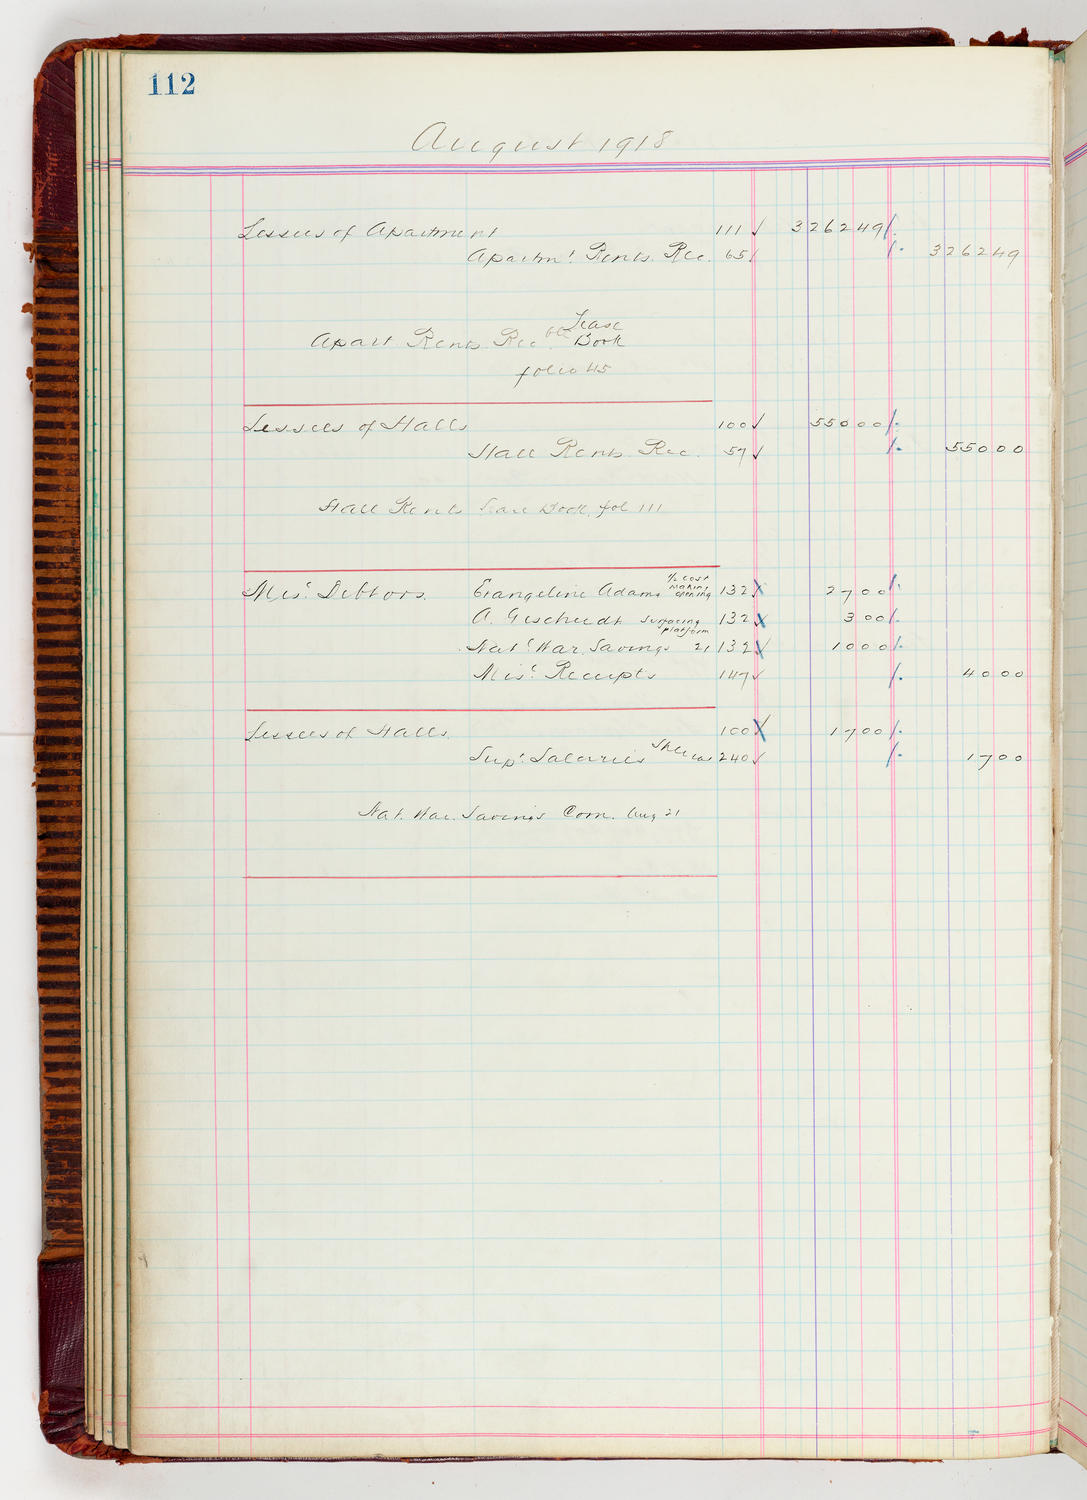 112
August 1918
Lessees of Apartment 111 ✓ 3262 49
Apartmt. Rents Rec. 65 3262 49
Apart Rents Rec. Lease
Book
folio 45
Lessees of Halls 100 ✓ 550 00
Hall Rents Rec. 57 ✓ 550 00
Hall Rents Lease Book fol 111
Misc. Debtors. Evangeline Adams ½ cost making opening 132 27 00
A. Guscheidt surfacing platform 132 3 00
Natl. War Savings 21 132 10 00
Misc. Receipts 147 ✓ 40 00
Lessees of Halls 100 17 00
Supt. Salaries 240 ✓ 17 00
Nat. War. Savings Com. Aug 21